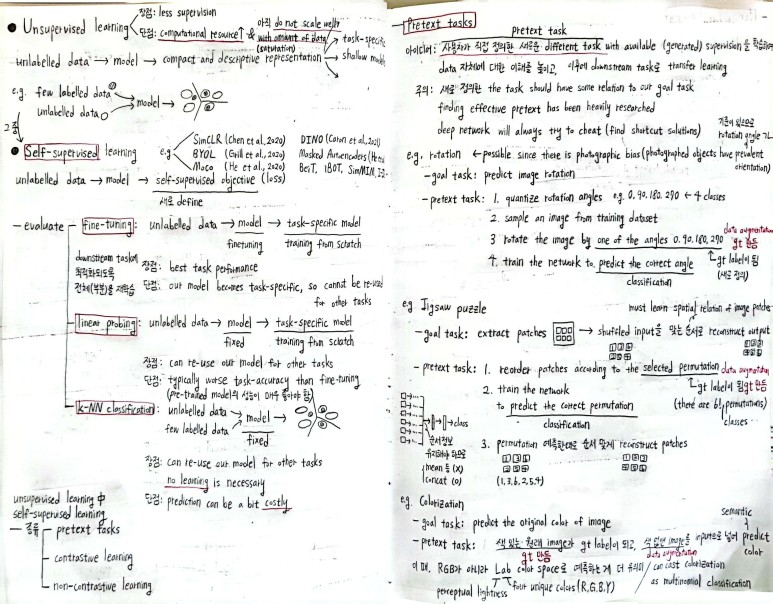 ● Unsupervised learning
장점: less supervision
단점: computational resource↑ & 아직 do not scale well with amount of data (saturation)
unlabelled data → model → compact and descriptive representation → task-specific shallow model
e.g. few labelled data
unlabelled data → model →
● Self-supervised learning
e.g. SimCLR (Chen et al., 2020)
BYOL (Grill et al., 2020)
MoCo (He et al., 2020)
DINO (Caron et al., 2021)
Masked Autoencoders
BeiT, IBOT, SimMIM,
unlabelled data → model → self-supervised objective (loss)
새로 define
— evaluate
fine-tuning: unlabelled data → model → task-specific model
finetuning training from scratch
downstream task에
최적화되도록
전체(부분)을 재학습
장점: best task performance
단점: our model becomes task-specific, so cannot be re-used
for other tasks
linear probing: unlabelled data → model → task-specific model
fixed training from scratch
장점: can re-use our model for other tasks
단점: typically worse task-accuracy than fine-tuning
(pre-trained model의 성능이 매우 좋아야 함)
k-NN classification: unlabelled data
few labelled data → model →
fixed
장점: can re-use our model for other tasks
no learning is necessary
단점: prediction can be a bit costly
unsupervised learning 中
self-supervised learning
— 종류
pretext tasks
contrastive learning
non-contrastive learning
— Pretext tasks
Pretext task
아이디어: 사용자가 직접 정의한 새로운 different task with available (generated) supervision을 학습하여
data 자체에 대한 이해를 높이고, 이후에 downstream task로 transfer learning
주의: 새로 정의한 the task should have some relation to our goal task
finding effective pretext has been heavily researched
deep network will always try to cheat (find shortcut solutions)
기준이 있으므로
rotation angle
e.g. rotation ← possible since there is photographic bias (photographed objects have prevalent
orientation)
— goal task: predict image rotation
— pretext task: 1. quantize rotation angles e.g. 0, 90, 180, 270 ← 4 classes
2. sample an image from training dataset
3. rotate the image by one of the angles 0, 90, 180, 270
data augmentation
gt 만듦
gt label이 됨
(새로 정의)
4. train the network to predict the correct angle
classification
e.g. Jigsaw puzzle
must learn spatial relation of image patches
— goal task: extract patches → shuffled input을 맞는 순서로 reconstruct output
— pretext task: 1. reorder patches according to the selected permutation
data augmentation
gt label이 됨 gt 만듦
(there are 6! permutations)
classes
2. train the network
to predict the correct permutation
classification
→ class
순서정보
유지해야 하므로
mean 등 (X)
concat (O)
3. permutation 예측한대로 순서 맞게 reconstruct patches
(1,3,6,2,5,4)
e.g. Colorization
— goal task: predict the original color of image
semantic
— pretext task: 색 있는 원래 image가 gt label이 되고, 색 없앤 image를 input으로 넣어 predict
color
gt 만듦
data augmentation
이 때, RGB가 아니라 Lab color space로 예측하는 게 더 유리
can cast colorization
as multinomial classification
perceptual lightness
four unique colors (R,G,B,Y)